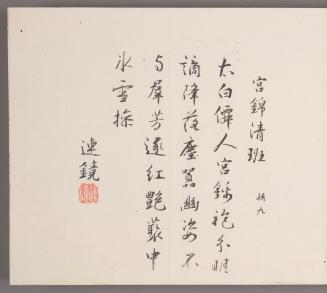 宮錦清班
太白僊人宮錦袍分明
謫降落塵囂幽姿不
与羣芳逐紅艷叢中
冰雪操
連鏡